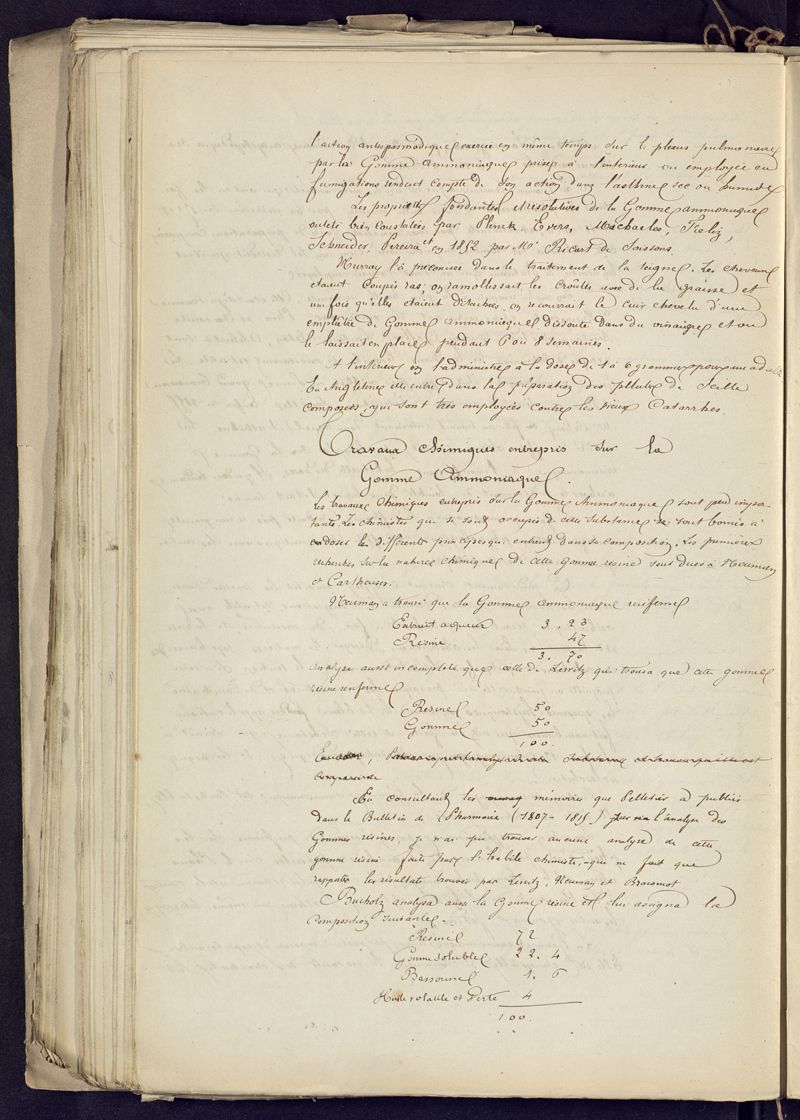 l'action antispasmodique exercée en même temps sur le plexus pulmonaire
par la Gomme ammoniaque prise à l'interieur ou employée en
fumigations rendent compte de son action dans l'asthme sec ou humide
Les propriétés fondantes et résolutives de la Gomme ammoniaque
ont été bien constatées par Plenck, Evers, Michaeles,
Schneider, Pereira et en 1852 par Mr Ricart de Soissons
Murray l'a préconisée dans le traitement de la teigne. Les cheveux
étaient coupés ras; on ramollissait les croûtes avec de la graisse et
une fois qu'elles étaient détachées on recouvrait le cuir chevelu d'une
emplâtre de Gomme ammoniaque dissoute dans du vinaigre et on
le laissait en place pendant 6 ou 8 semaines.
A l'interieur on l'administre à la dose de 1 à 6 grammes pour un adulte
En Angleterre elle entre dans la préparation des pilules de Scille
composées, qui sont très employées contre les vieux Catarrhes.
Travaux Chimiques entrepris sur la
Gomme Ammoniaque.
Les travaux chimiques entrepris sur la Gomme Ammoniaque sont peu impor-
tants. Les chimistes qui se sont occupés de cette substance se sont bornés à
doser les différents principes qui entrent dans sa composition. Les premières
recherches sur la nature chimique de cette gomme résine sont dues à Neuman
et Carthauser.
Neuman a trouvé que la Gomme ammoniaque renferme
Extrait aqueux 3. 23
Résine 47
3. 70
analyse aussi incomplète que celle de Lewitz qui trouva que cette gomme
résine renferme
Résine 50
Gomme 50
100.
En consultant les mémoires que Pelletier a publiés
dans le Bulletin de Pharmacie (1807-1815) sur l'analyse des
Gommes résines, je n'ai pu trouver aucune analyse de cette
gomme résine faite par l'habile chimiste, qui ne fait que
rapporter les résultats trouvés par Lewitz, Neuman et Braconnot
Bucholz analysa aussi la Gomme résine et lui assigna la
Composition suivante.
Résine 72
Gomme soluble 22. 4
Bassorine 1. 6
Huile volatile et Perte 4
100.